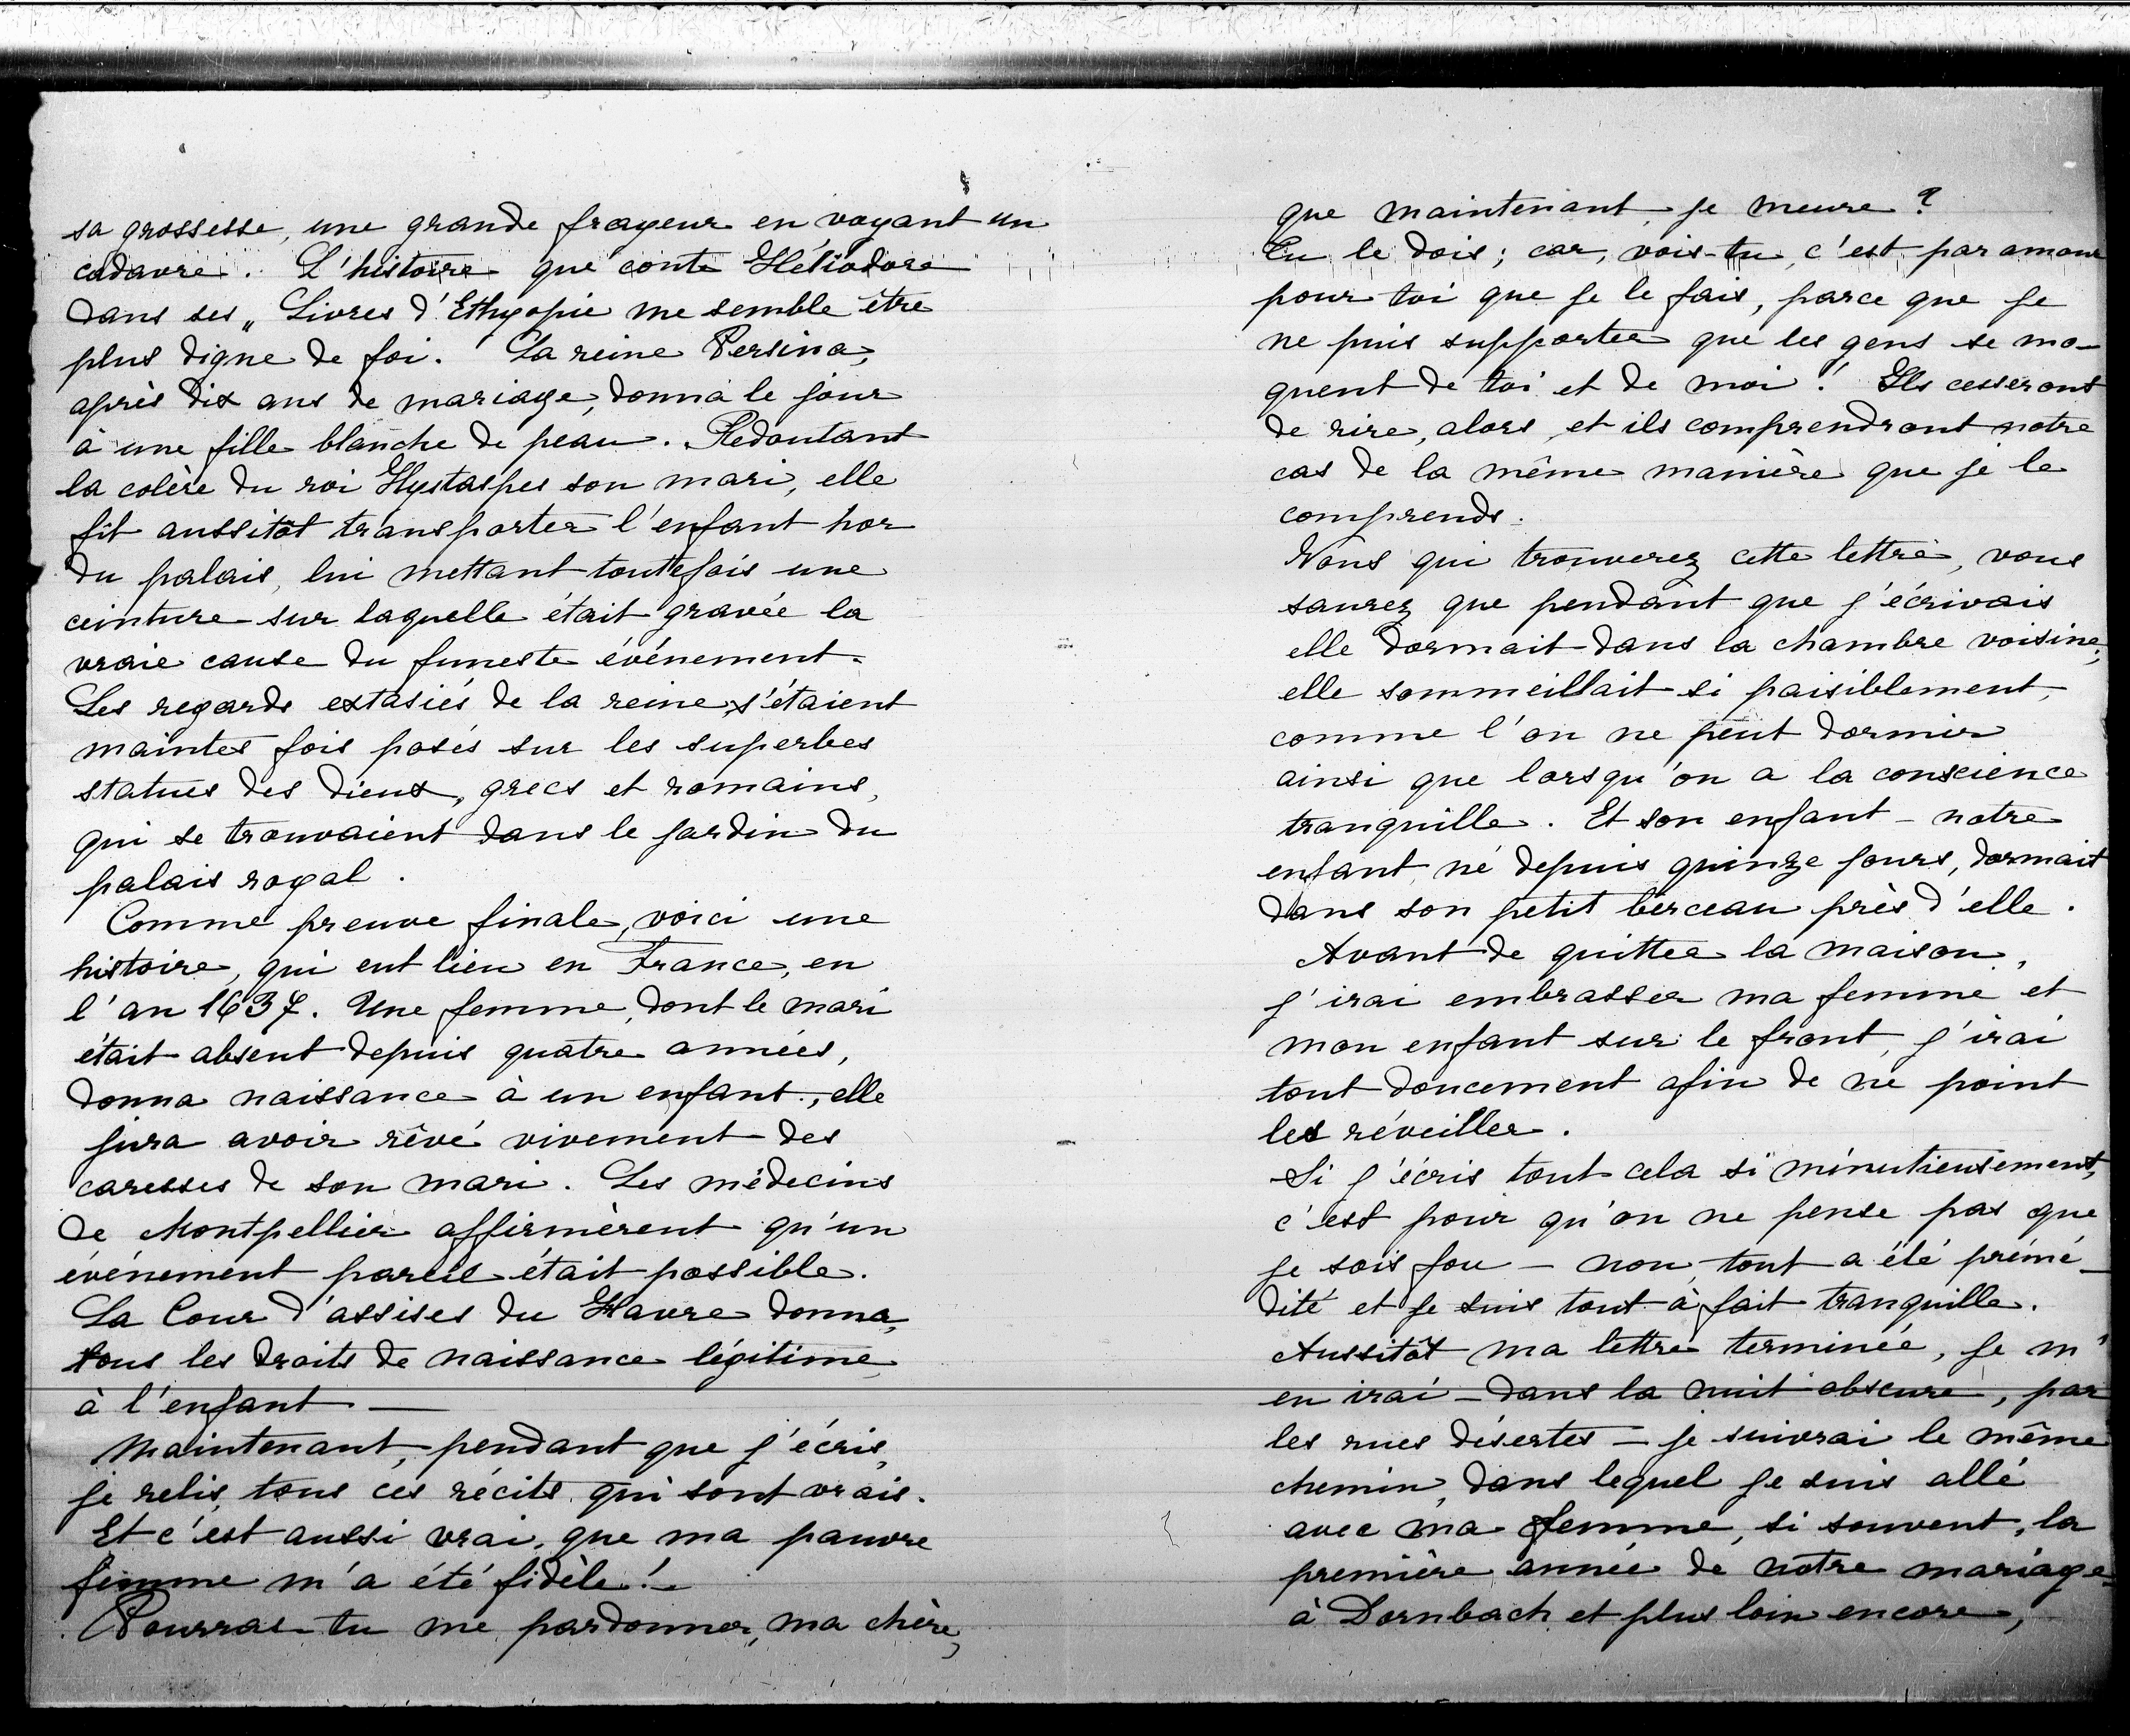 sa grossesse, une grande frayeur en voyant un
cadavre. L'histoire que conte Héliodore
dans ses „ Livres d'Ethyopie me semble être
plus digne de foi. La reine Persina,
après dix ans de mariage, donna le jour
à une fille blanche de peau. Redoutant
la colère du roi Hystaspes son mari, elle
fit aussitôt transporter l'enfant hor
du palais, lui mettant toutefois une
ceinture sur laquelle était gravée la
vraie cause du funeste événement.
Les regards extasiés de la reine s'étaient
maintes fois posés sur les superbes
statues des dieux, grecs et romains,
qui se trouvaient dans le jardin du
palais royal.
Comme preuve finale, voici une
histoire, qui eut lieu en France, en
l'an 1637. Une femme, dont le mari
était absent depuis quatre années,
donna naissance à un enfant, elle
jura avoir rêvé vivement des
caresses de son mari. Les médecins
de Montpellier affirmèrent qu'un
événement pareil était possible.
La Cour d'assises du Havre donna,
tous les droits de naissance légitime,
à l'enfant —
Maintenant, pendant que j'écris,
je relis, tous ces récits, qui sont vrais.
Et c'est aussi vrai, que ma pauvre
femme m'a été fidèle! -
Pourras-tu me pardonner, ma chère,
que maintenant, je meure?
Tu le dois; car, vois-tu, c'est par amour
pour toi que je le fais, parce que je
ne puis supporter que les gens se mo-
quent de toi et de moi! Ils cesseront
de rire, alors, et ils comprendront notre
cas de la même manière que je le
comprends.
Vous qui trouverez cette lettre, vous
saurez que pendant que j'écrivais
elle dormait dans la chambre voisine;
elle sommeillait si paisiblement,
comme l'on ne peut dormir
ainsi que lorsqu'on a la conscience
tranquille. Et son enfant - notre
enfant, né depuis quinze jours, dormait
dans son petit berceau près d'elle.
Avant de quitter la maison,
j'irai embrasser ma femme et
mon enfant sur le front, j'irai
tout doucement afin de ne point
les réveiller.
Si j'écris tout cela si minutieusement,
c'est pour qu'on ne pense pas que
je sois fou - non, tout a été prémé-
dité et je suis tout à fait tranquille.
Aussitôt ma lettre terminée, je m'
en irai - dans la nuit obscure, par
les rues désertes - je suivrai le même
chemin, dans lequel je suis allé
avec ma femme, si souvent, la
première année de notre mariage
à Dornbach et plus loin encore,